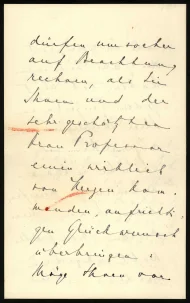 dürfen um so eher
auf Beachtung
rechnen, als Sie
Ihnen und der
sehr geschätzten
Frau Professor
einen wirklich
von Herzen kom-
menden, aufrichti-
gen Glückwunsch
überbringen.
Mög Ihnen vor